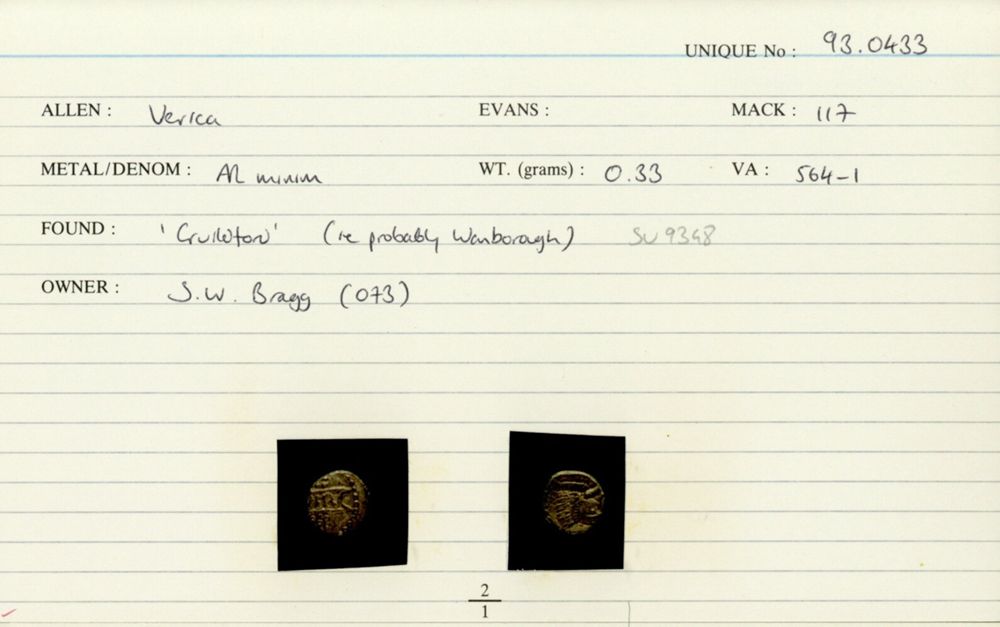 UNIQUE No : 93.0433
ALLEN : Verica EVANS : MACK : 117
METAL/DENOM : AR minim WT. (grams) : 0.33 VA : 564-1
FOUND : 'Guildford' (ie probably Wanborough) SU 9348
OWNER : S.W. Bragg (073)
2
1